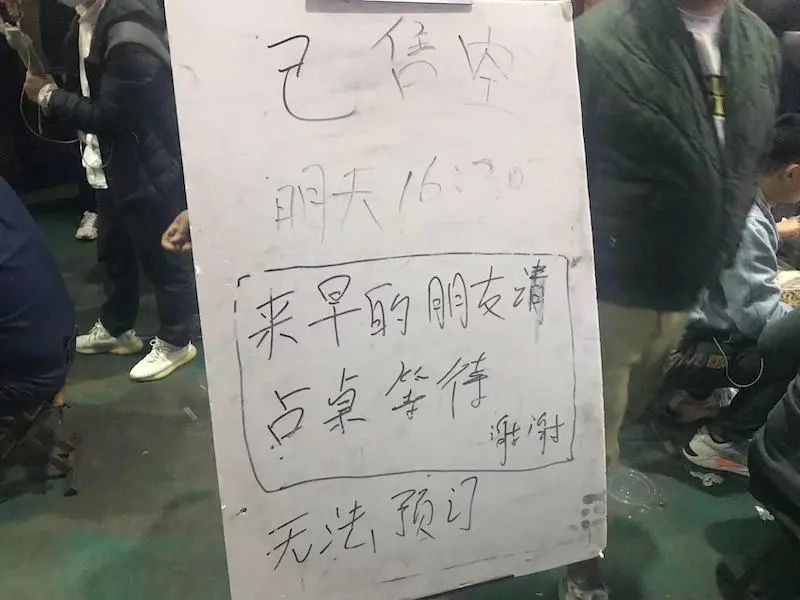 已售空
明天16:30
来早的朋友请
占桌等待
谢谢
无法预订